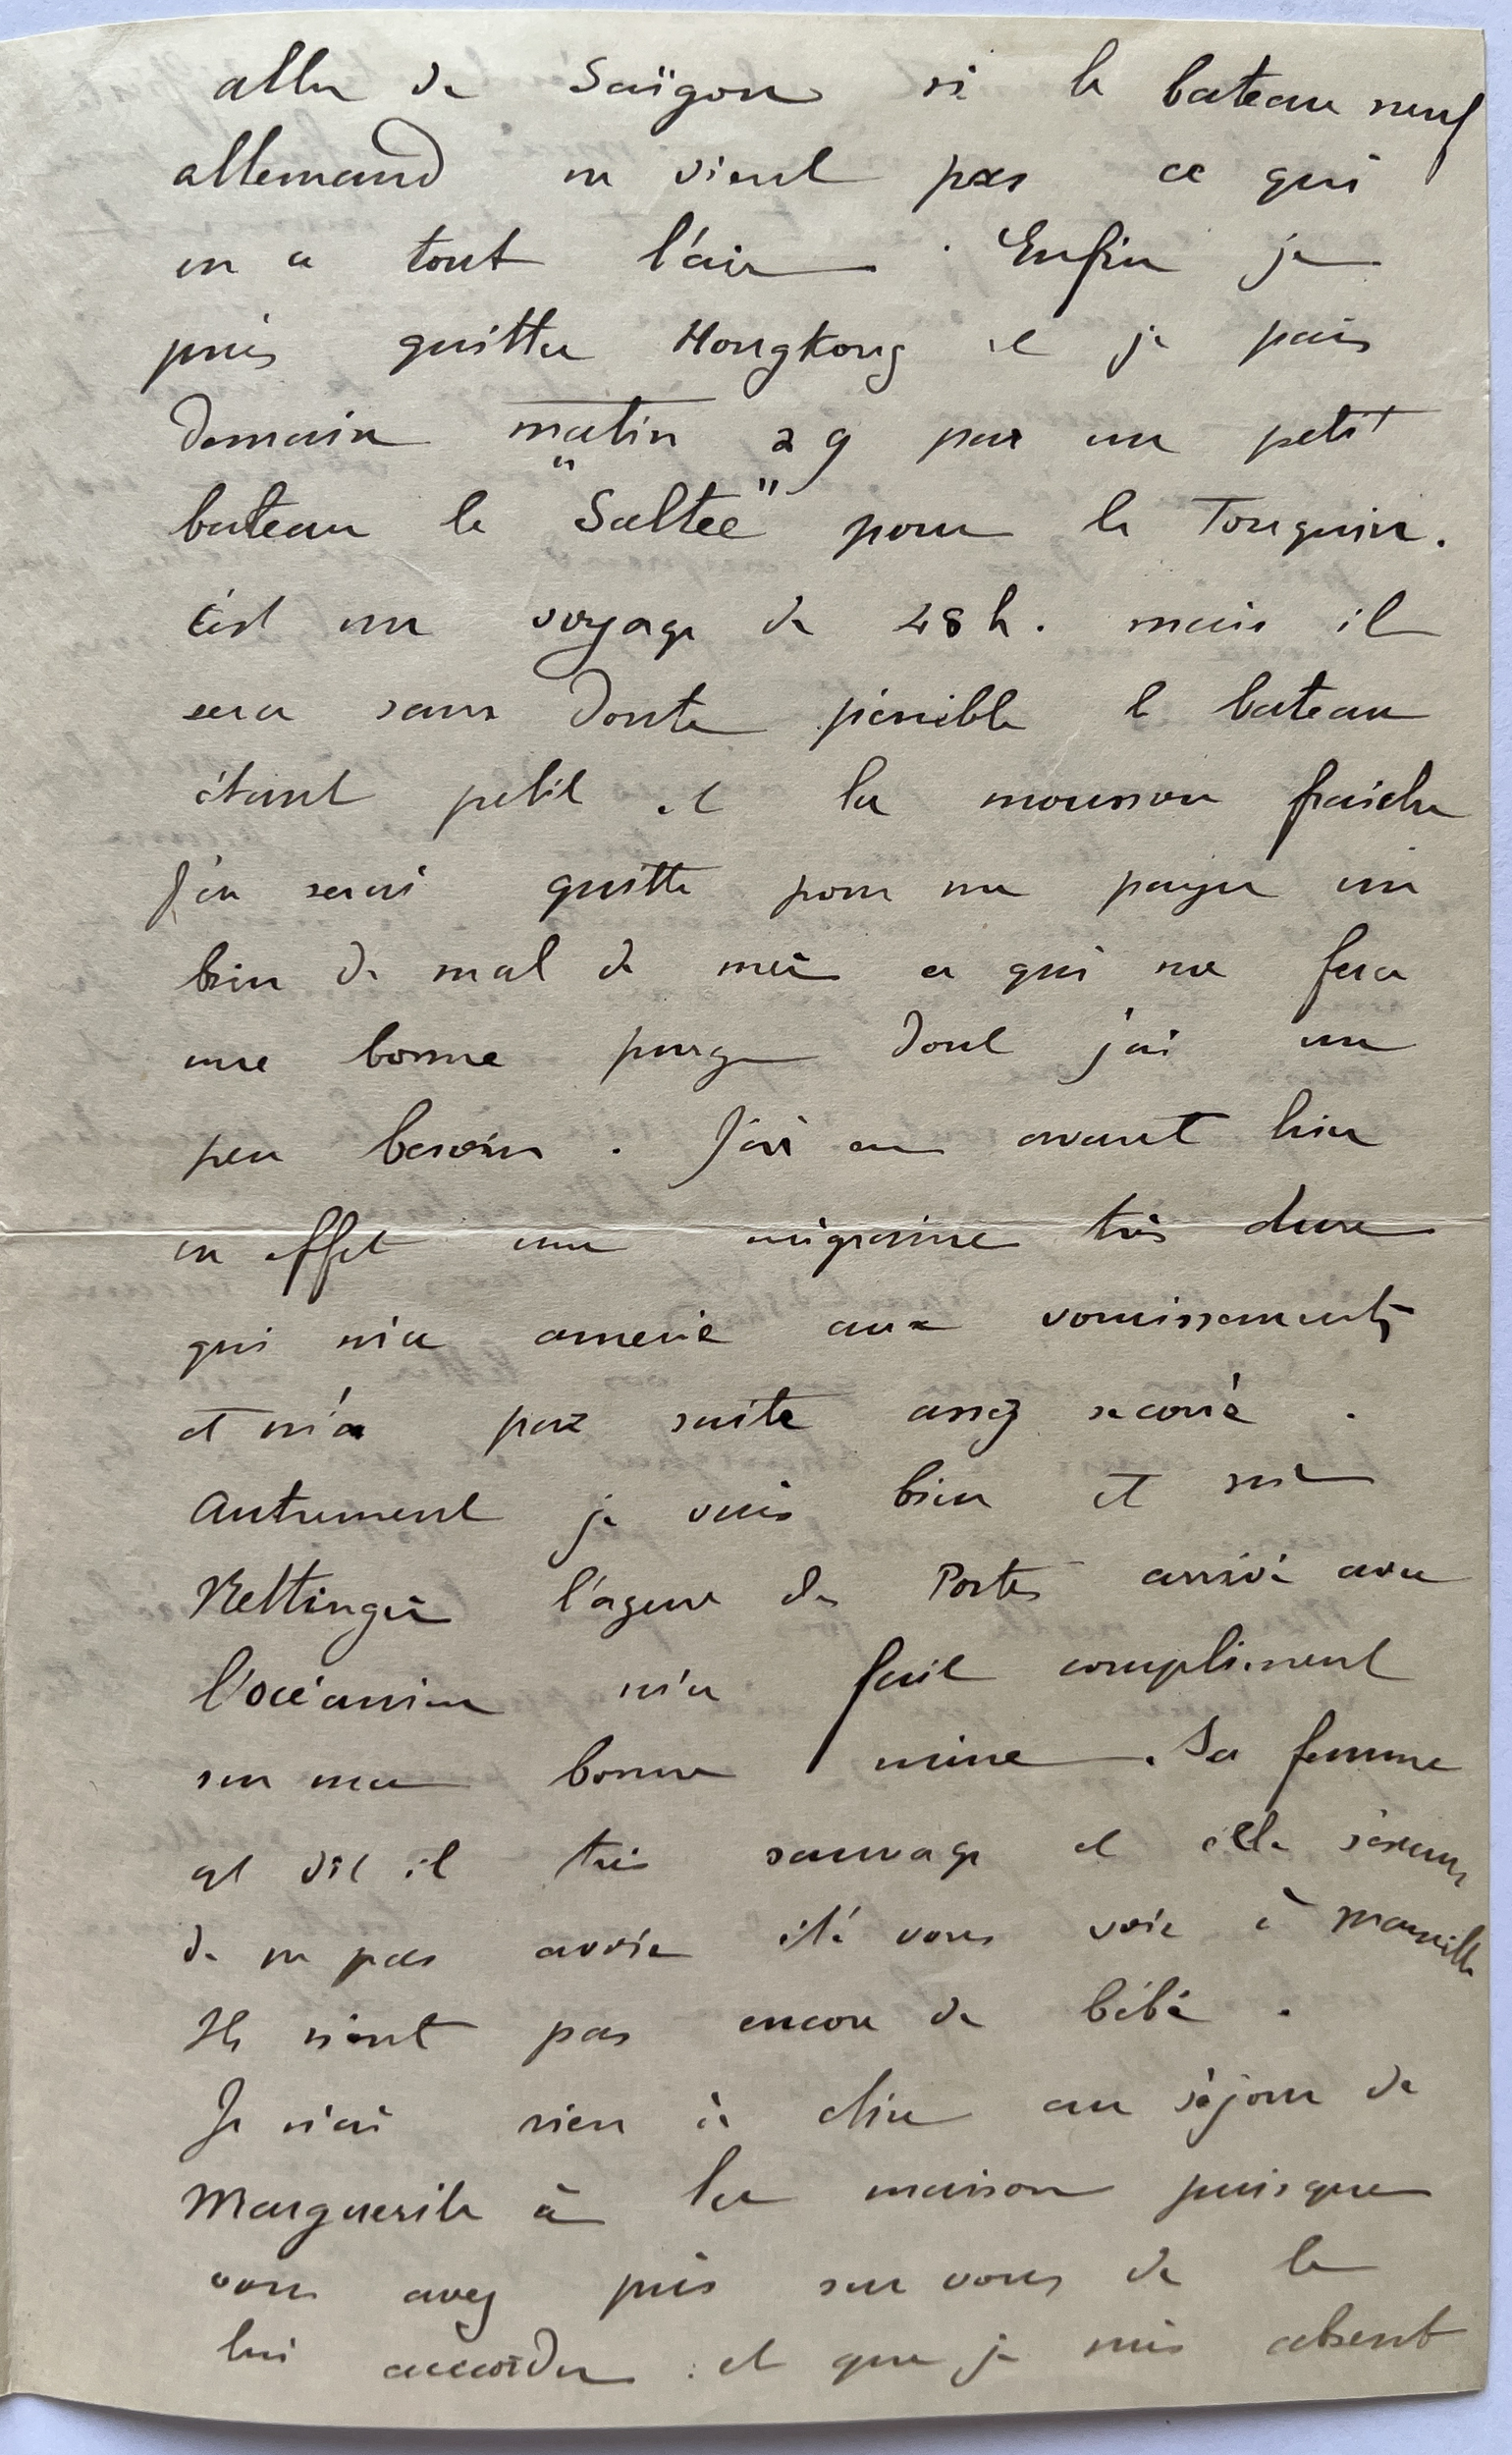 aller de Saïgon si le bateau neuf
allemand ne vient pas ce qui
en a tout l'air. Enfin je
puis quitter Hongkong et je pars
demain matin 29 par un petit
bateau le "Saltee" pour le Tonquin.
C'est un voyage de 48 h. mais il
sera sans doute pénible le bateau
étant petit et la mousson fraiche
J'en serai quitte pour me payer un
brin de mal de mer ce qui me fera
une bonne purge dont j'ai un
peu besoin. J'ai eu avant hier
en effet une migraine très dure
qui m'a amené aux vomissements
et m'a par suite assez secoué.
Autrement je vais bien et
l'agent des Postes arrivé avec
l'océanien m'a fait compliment
sur ma bonne mine. Sa femme
est dit il très sauvage et elle s'excuse
de ne pas avoir été vous voir à Marseille
Ils n'ont pas encore de bébé.
Je n'ai rien à dire au séjour de
Marguerite à la maison puisque
vous avez pris sur vous de le
lui accorder et que je suis absent